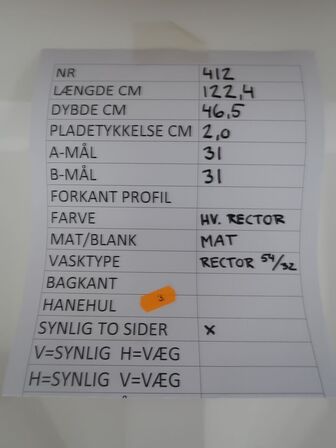 NR 412
LÆNGDE CM 122,4
DYBDE CM 46,5
PLADETYKKELSE CM 2,0
A-MÅL 31
B-MÅL 31
FORKANT PROFIL
FARVE HV. RECTOR
MAT/BLANK MAT
VASKTYPE RECTOR 54/32
BAGKANT
HANEHUL 3
SYNLIG TO SIDER X
V=SYNLIG H=VÆG
H=SYNLIG V=VÆG